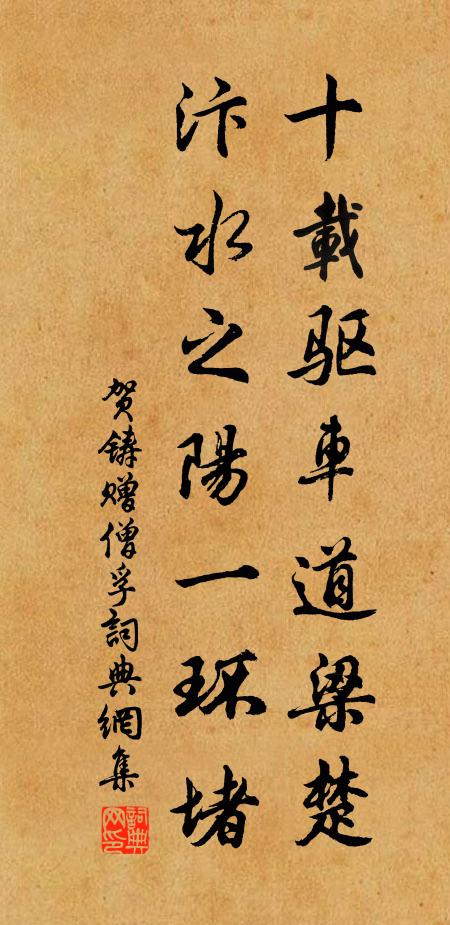 十載驱車道梁楚
汴水之陽一环堵
贺鑄赠僧孚詞典網集
詞典网印